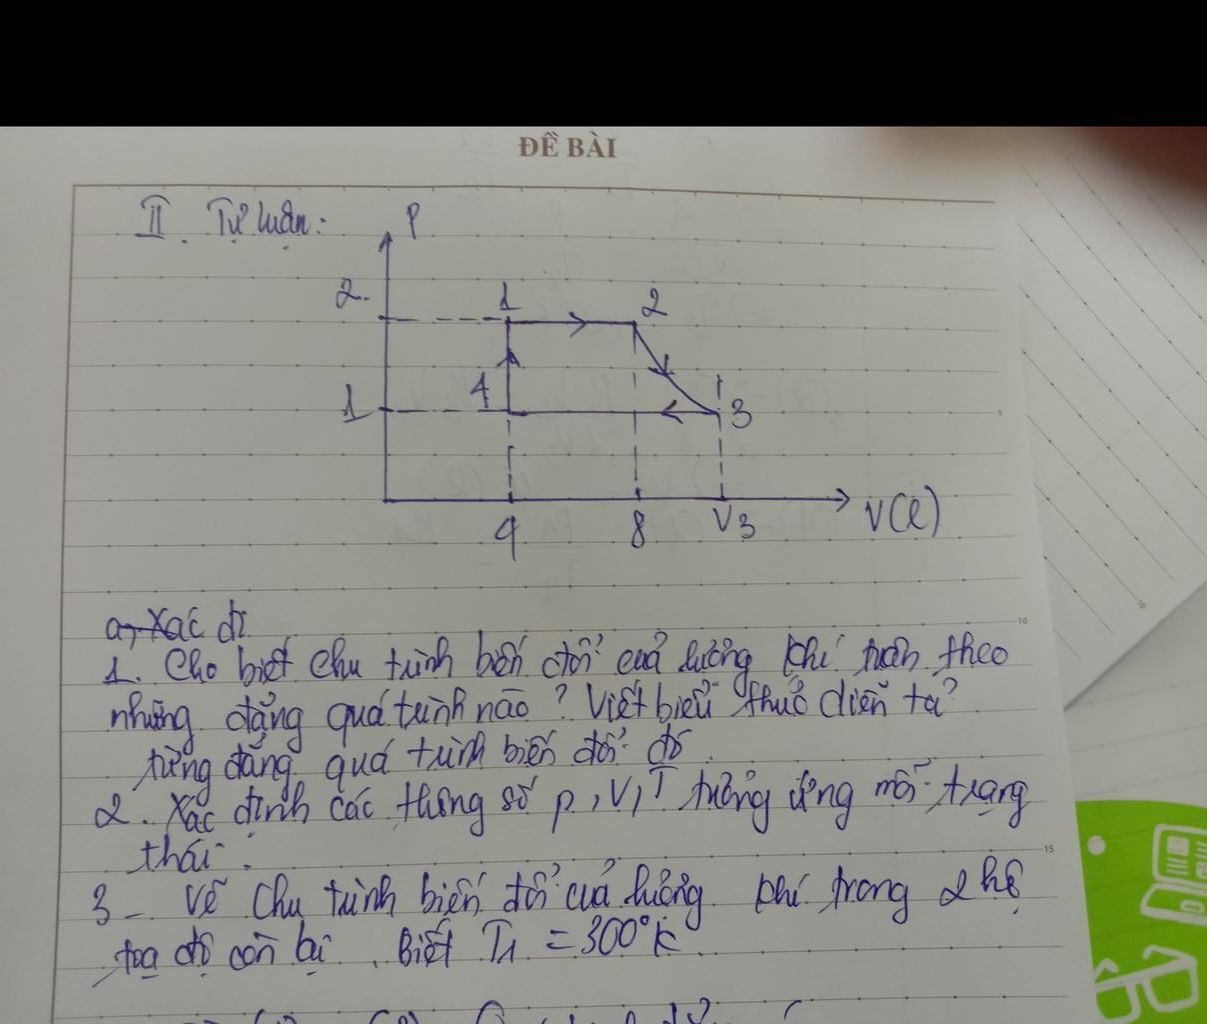 ĐỀ BÀI
II. Tự luận:
P
2
1
2
1
4
3
4
8
V3
V(l)
a, Xác đị
1. Cho biết chu trình biến đổi của lượng khí trên theo
những đẳng quá trình nào? Viết biểu thức diễn tả
từng đẳng quá trình biến đổi đó.
2. Xác định các thông số p, V, T tương ứng mỗi trạng
thái.
3- Vẽ chu trình biến đổi của lượng khí trong 2 hệ
tọa độ còn lại. Biết T1 = 300°K.